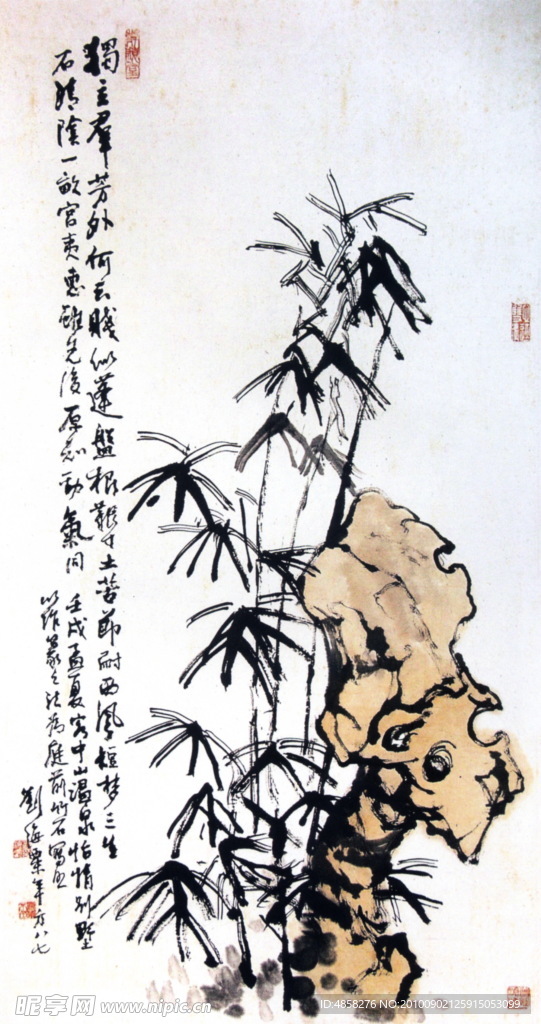 獨立羣芳外何云賤似蓬盤根艱寸土苦節耐西風短梦三生
石清陰一畝宮夷惠雖先後原知勁氣同 壬戌孟夏客中山溫泉怡情別墅
以作篆之法為庭前竹石寫照
劉海粟年方八七
昵享网 www.nipic.cn
ID:4858276 NO:20100902125915053099